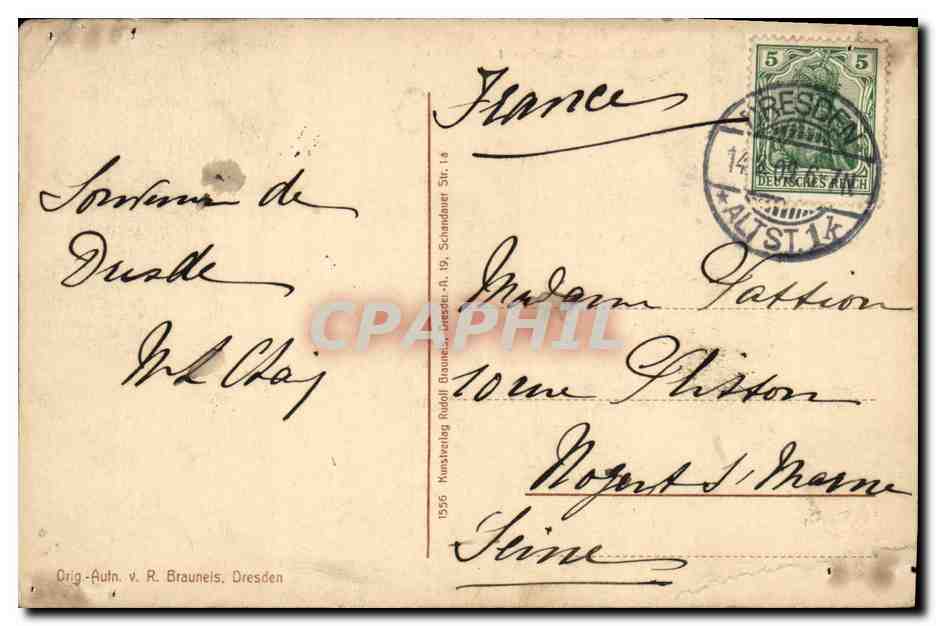 France
5 5
DEUTSCHES REICH
DRESDEN
14. 09. 6-7N
* ALTST. 1k
Souvenir de
Dresde
Madame
10 rue
Nogent s/ Marne
Seine
CPAPHIL
1556 Kunstverlag Rudolf Brauneis, Dresden-A. 19, Schandauer Str. 1a
Orig.-Aufn. v. R. Brauneis, Dresden